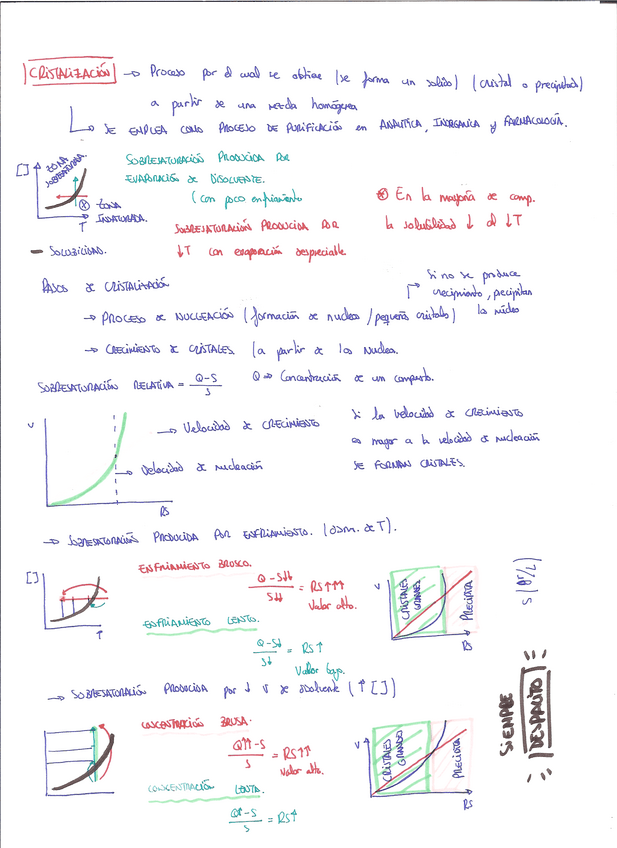 CRISTALIZACIÓN → Proceso por el cual se obtiene (se forma un solido) (cristal o precipitado)
a partir de una mezcla homógenea
→ SE EMPLEA COMO PROCESO DE PURIFICACIÓN en ANALITICA, INORGANICA y FARMACOLOGÍA.
[ ] ZONA SOBRESATURADA.
ZONA INSATURADA.
T
SOBRESATURACIÓN PRODUCIDA POR
EVAPORACIÓN DE DISOLVENTE.
(con poco enfriamiento
SOBRESATURACIÓN PRODUCIDA POR
↓T con evaporación despreciable
⊗ En la mayoria de comp.
la solubilidad ↓ al ↓T
— SOLUBILIDAD.
PASOS DE CRISTALIZACIÓN
→ PROCESO DE NUCLEACIÓN (formación de nucleos / pequeños cristales)
Si no se produce
crecimiento, precipitan
los núcleos
→ CRECIMIENTO DE CRISTALES. (a partir de los Nucleos.
SOBRESATURACIÓN RELATIVA = Q-S / S Q → Concentración de un compuesto.
V
→ Velocidad de CRECIMIENTO
→ Velocidad de nucleación
RS
Si la velocidad de CRECIMIENTO
es mayor a la velocidad de nucleación
SE FORMAN CRISTALES.
→ SOBRESATURACIÓN PRODUCIDA POR ENFRIAMIENTO. (dism. de T).
[ ]
T
ENFRIAMIENTO BRUSCO.
Q - S↓↓ / S↓↓ = RS↑↑↑
Valor alto.
ENFRIAMIENTO LENTO.
Q-S↓ / S↓ = RS↑
Valor bajo.
V
CRISTALES GRANDES
PRECIPITA
RS
→ SOBRESATURACIÓN PRODUCIDA por ↓ V de disolvente (↑ [ ])
CONCENTRACIÓN BRUSCA.
Q↑↑-S / S = RS↑↑
Valor alto.
CONCENTRACIÓN LENTA.
Q↑-S / S = RS↑
V
CRISTALES GRANDES
PRECIPITA
RS
SIEMPRE
DESPACITO